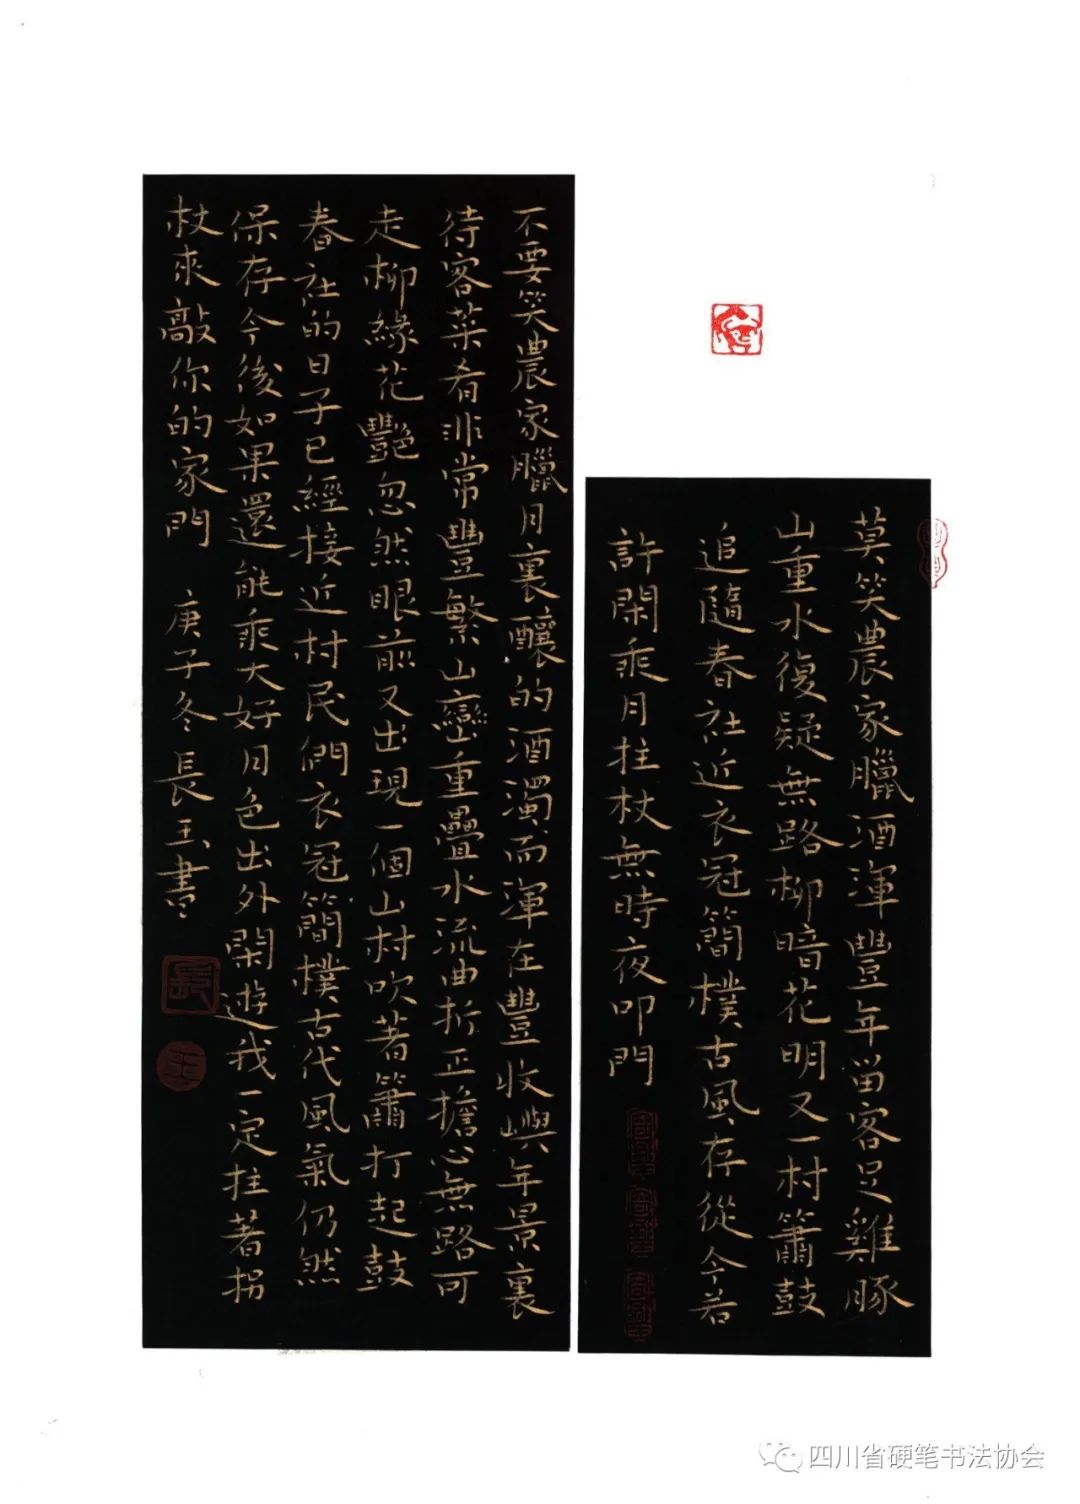 莫笑農家臘酒渾豐年留客足雞豚
山重水復疑無路柳暗花明又一村簫鼓
追隨春社近衣冠簡樸古風存從今若
許閑乘月拄杖無時夜叩門
不要笑農家臘月裏釀的酒濁而渾在豐收嶼年景裏
待客菜肴非常豐繁山巒重疊水流曲折正擔心無路可
走柳緣花艷忽然眼前又出現一個山村吹著簫打起鼓
春社的日子已經接近村民們衣冠簡樸古代風氣仍然
保存今後如果還能乘大好月色出外閑遊我一定拄著拐
杖來敲你的家門 庚子冬長玉書
四川省硬笔书法协会